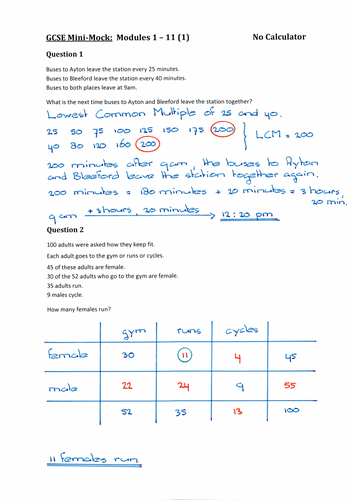 GCSE Mini-Mock: Modules 1 – 11 (1) No Calculator
Question 1
Buses to Ayton leave the station every 25 minutes.
Buses to Bleeford leave the station every 40 minutes.
Buses to both places leave at 9am.
What is the next time buses to Ayton and Bleeford leave the station together?
Lowest Common Multiple of 25 and 40.
25 50 75 100 125 150 175 200
40 80 120 160 200
LCM = 200
200 minutes after 9am, the buses to Ayton
and Bleeford leave the station together again.
200 minutes = 180 minutes + 20 minutes = 3 hours,
20 min.
9am + 3 hours, 20 minutes 12:20 pm
Question 2
100 adults were asked how they keep fit.
Each adult goes to the gym or runs or cycles.
45 of these adults are female.
30 of the 52 adults who go to the gym are female.
35 adults run.
9 males cycle.
How many females run?
gym runs cycles
female 30 11 4 45
male 22 24 9 55
52 35 13 100
11 females run